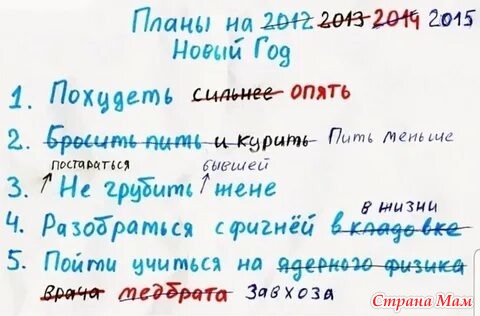 Планы на 2012 2013 2014 2015
Новый Год
1. Похудеть сильнее опять
2. Бросить пить и курить Пить меньше
постараться бывшей
3. Не грубить жене
в жизни
4. Разобраться с фигнёй в кладовке
5. Пойти учиться на ядерного физика
врача медбрата Завхоза
Страна Мам